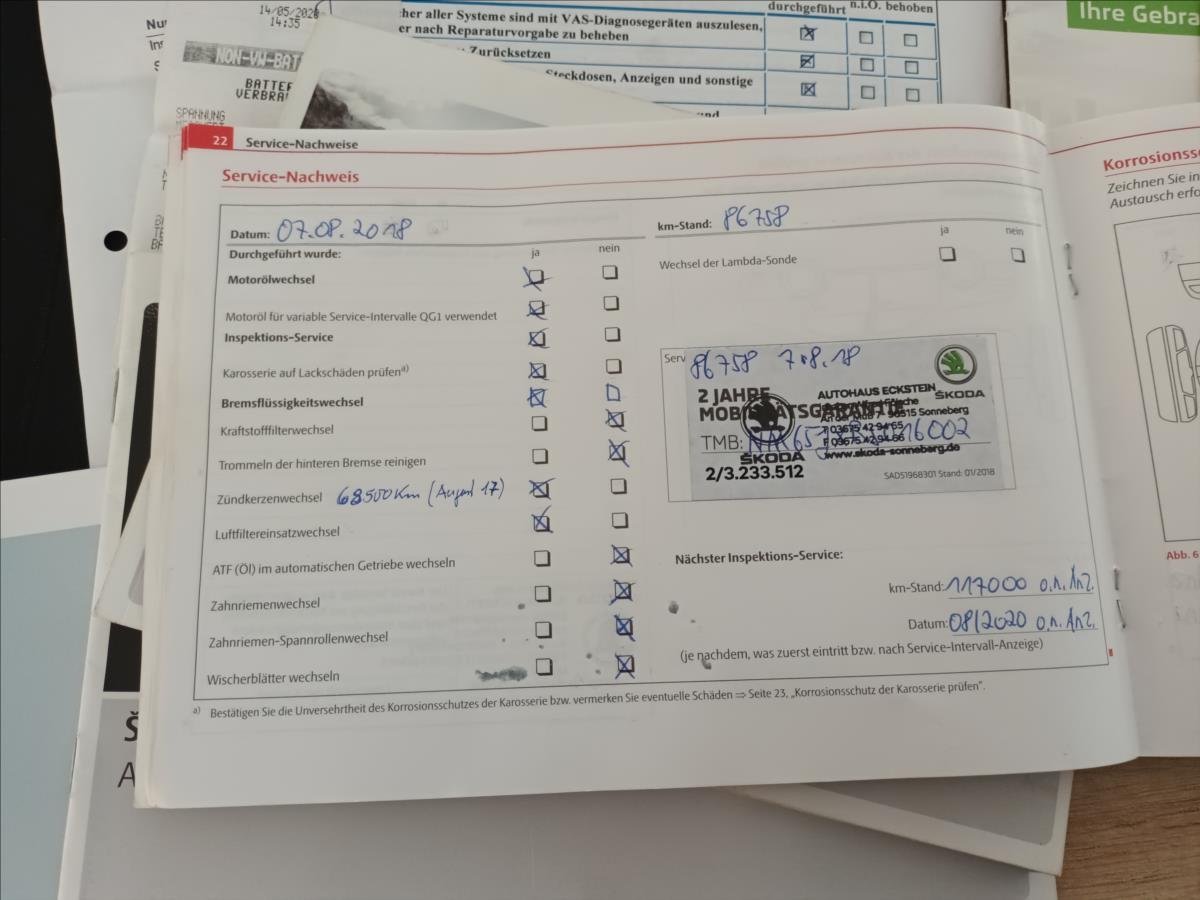 14/05/202
14:35
NON-VW-BAT
BATTER
VERBRA
SPANNUNG
her aller Systeme sind mit VAS-Diagnosegeräten auszulesen,
er nach Reparaturvorgabe zu beheben
Zurücksetzen
Steckdosen, Anzeigen und sonstige
durchgeführt n.i.O. behoben
Ihre Gebra
22 Service-Nachweise
Service-Nachweis
Datum: 07.08.2018
km-Stand: 86758
Durchgeführt wurde: ja nein
ja nein
Motorölwechsel
Wechsel der Lambda-Sonde
Motoröl für variable Service-Intervalle QG1 verwendet
Inspektions-Service
Karosserie auf Lackschäden prüfen a)
Bremsflüssigkeitswechsel
Kraftstofffilterwechsel
Trommeln der hinteren Bremse reinigen
Zündkerzenwechsel 68500 Km (August 17)
Luftfiltereinsatzwechsel
ATF (Öl) im automatischen Getriebe wechseln
Zahnriemenwechsel
Zahnriemen-Spannrollenwechsel
Wischerblätter wechseln
Serv
86758 7.8.18
2 JAHRE
MOBILITÄTSGARANTIE
TMB:
2/3.233.512
AUTOHAUS ECKSTEIN
96515 Sonneberg
T 03675 42 94 65
F 03675 42 94 66
www.skoda-sonneberg.de
ŠKODA
ŠKODA
SAD51968301 Stand: 01/2018
Nächster Inspektions-Service:
km-Stand: 117000 o.n. Anz.
Datum: 08/2020 o.n. Anz.
(je nachdem, was zuerst eintritt bzw. nach Service-Intervall-Anzeige)
a) Bestätigen Sie die Unversehrtheit des Korrosionsschutzes der Karosserie bzw. vermerken Sie eventuelle Schäden ⇒ Seite 23, „Korrosionsschutz der Karosserie prüfen".
Korrosionss
Zeichnen Sie in
Austausch erfo
Abb. 6